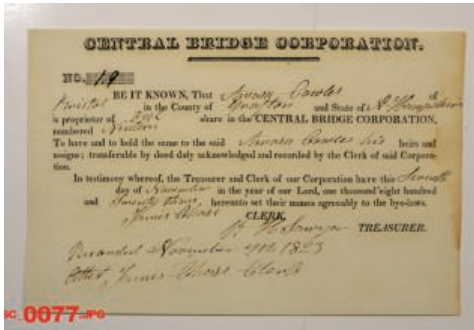 CENTRAL BRIDGE CORPORATION.
NO. 19
BE IT KNOWN, That Cowles of
Bristol in the County of Grafton and State of N. Hampshire
is proprietor of one share in the CENTRAL BRIDGE CORPORATION,
numbered Nineteen
To have and to hold the same to the said Cowles his heirs and
assigns; transferable by deed duly acknowledged and recorded by the Clerk of said Corpora-
tion.
In testimony whereof, the Treasurer and Clerk of our Corporation have this Seventh
day of November in the year of our Lord, one thousand eight hundred
and Twenty three hereunto set their names agreeably to the bye-laws.
CLERK.
TREASURER.
Recorded November 1823
Attest Clerk
SC_0077.JPG